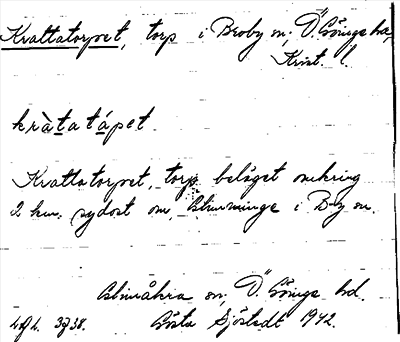 Kvattatorpet, torp i Broby sn, Ö. Göinge hd,
Krist. l.
kràtatápet.
Kvattatorpet, torp beläget omkring
2 km. sydost om Glimminge i B-y sn.
Glimåkra sn, Ö. Göinge hd.
Gösta Sjöstedt 1942.